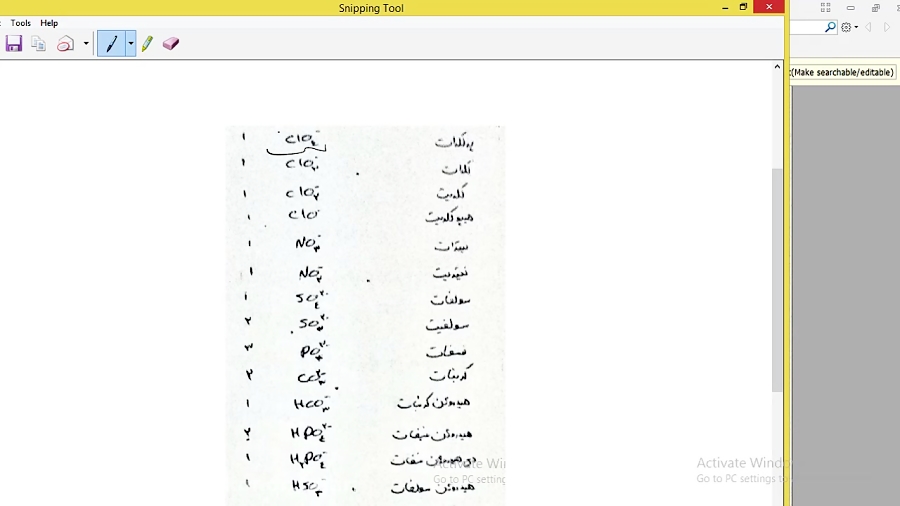 Snipping Tool
Tools Help
(Make searchable/editable)
پرکلرات ClO₄⁻ ۱
کلرات ClO₃⁻ ۱
کلریت ClO₂⁻ ۱
هیپوکلریت ClO⁻ ۱
نیترات NO₃⁻ ۱
نیتریت NO₂⁻ ۱
سولفات SO₄²⁻ ۱
سولفیت SO₃²⁻ ۲
فسفات PO₄³⁻ ۳
کربنات CO₃²⁻ ۲
هیدروژن کربنات HCO₃⁻ ۱
هیدروژن فسفات HPO₄²⁻ ۲
دی هیدروژن فسفات H₂PO₄⁻ ۱
هیدروژن سولفات ۱
Activate Wi
Go to PC setting
Activate Windo
Go to PC settings to